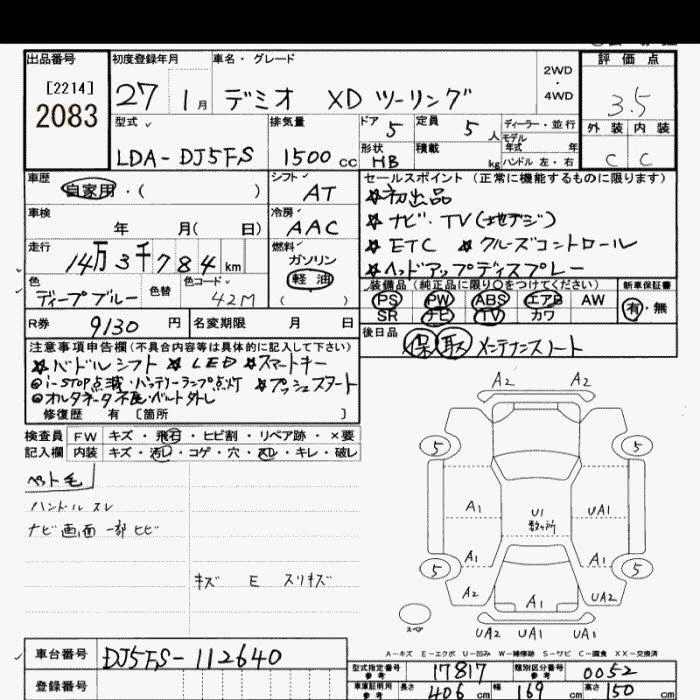 出品番号 初度登録年月 車名・グレード 評価点
[2214]
2083
27 1月 デミオ XD ツーリング 2WD・4WD 3.5
型式 排気量 ドア 5 定員 5人 ディーラー・並行 外装 内装
LDA-DJ5FS 1500cc 形状 HB 積載 kg モデル年式 年 ハンドル 左・右 C C
車歴 自家用・( ) シフト AT セールスポイント (正常に機能するものに限ります)
☆初出品
車検 年 月( 日) 冷房 AAC ☆ナビ・TV(地デジ)
走行 14万3千784km 燃料 ガソリン 軽油 ( ) ☆ETC ☆クルーズコントロール
☆ヘッドアップディスプレー
色 ディープブルー 色替 色コード 42M 装備品(純正品に限り○をつけてください) 新車保証書
PS PW ABS エアB AW 有・無
SR ナビ TV カワ
R券 9130円 名変期限 月 日 後日品 保 取 メンテナンスノート
注意事項申告欄(不具合内容等は具体的に記入して下さい)
☆パドルシフト ☆LED ☆スマートキー
◎i-STOP点滅・バッテリーランプ点灯 ☆プッシュスタート
◎オルタネータ不良・ベルト外し
修復歴 有 [箇所 ]
検査員 FW キズ・飛石・ヒビ割・リペア跡・×要
記入欄 内装 キズ・汚レ・コゲ・穴・スレ・キレ・破レ
ペット毛
ハンドル スレ
ナビ画面 一部ヒビ
キズ E スリキズ
A2 A2
5 5
A1 U1 数ヶ所 UA1
A1 A1
5 5
A2 A1 UA2
スペア UA2 UA1 UA1
A-キズ E-エクボ U-凹み W-補修跡 S-サビ C-腐食 XX-交換済
車台番号 DJ5FS-112640
型式指定番号 参考 17817 類別区分番号 参考 0052
登録番号 車庫証明用 参考 長さ 406cm 幅 169cm 高さ 150cm